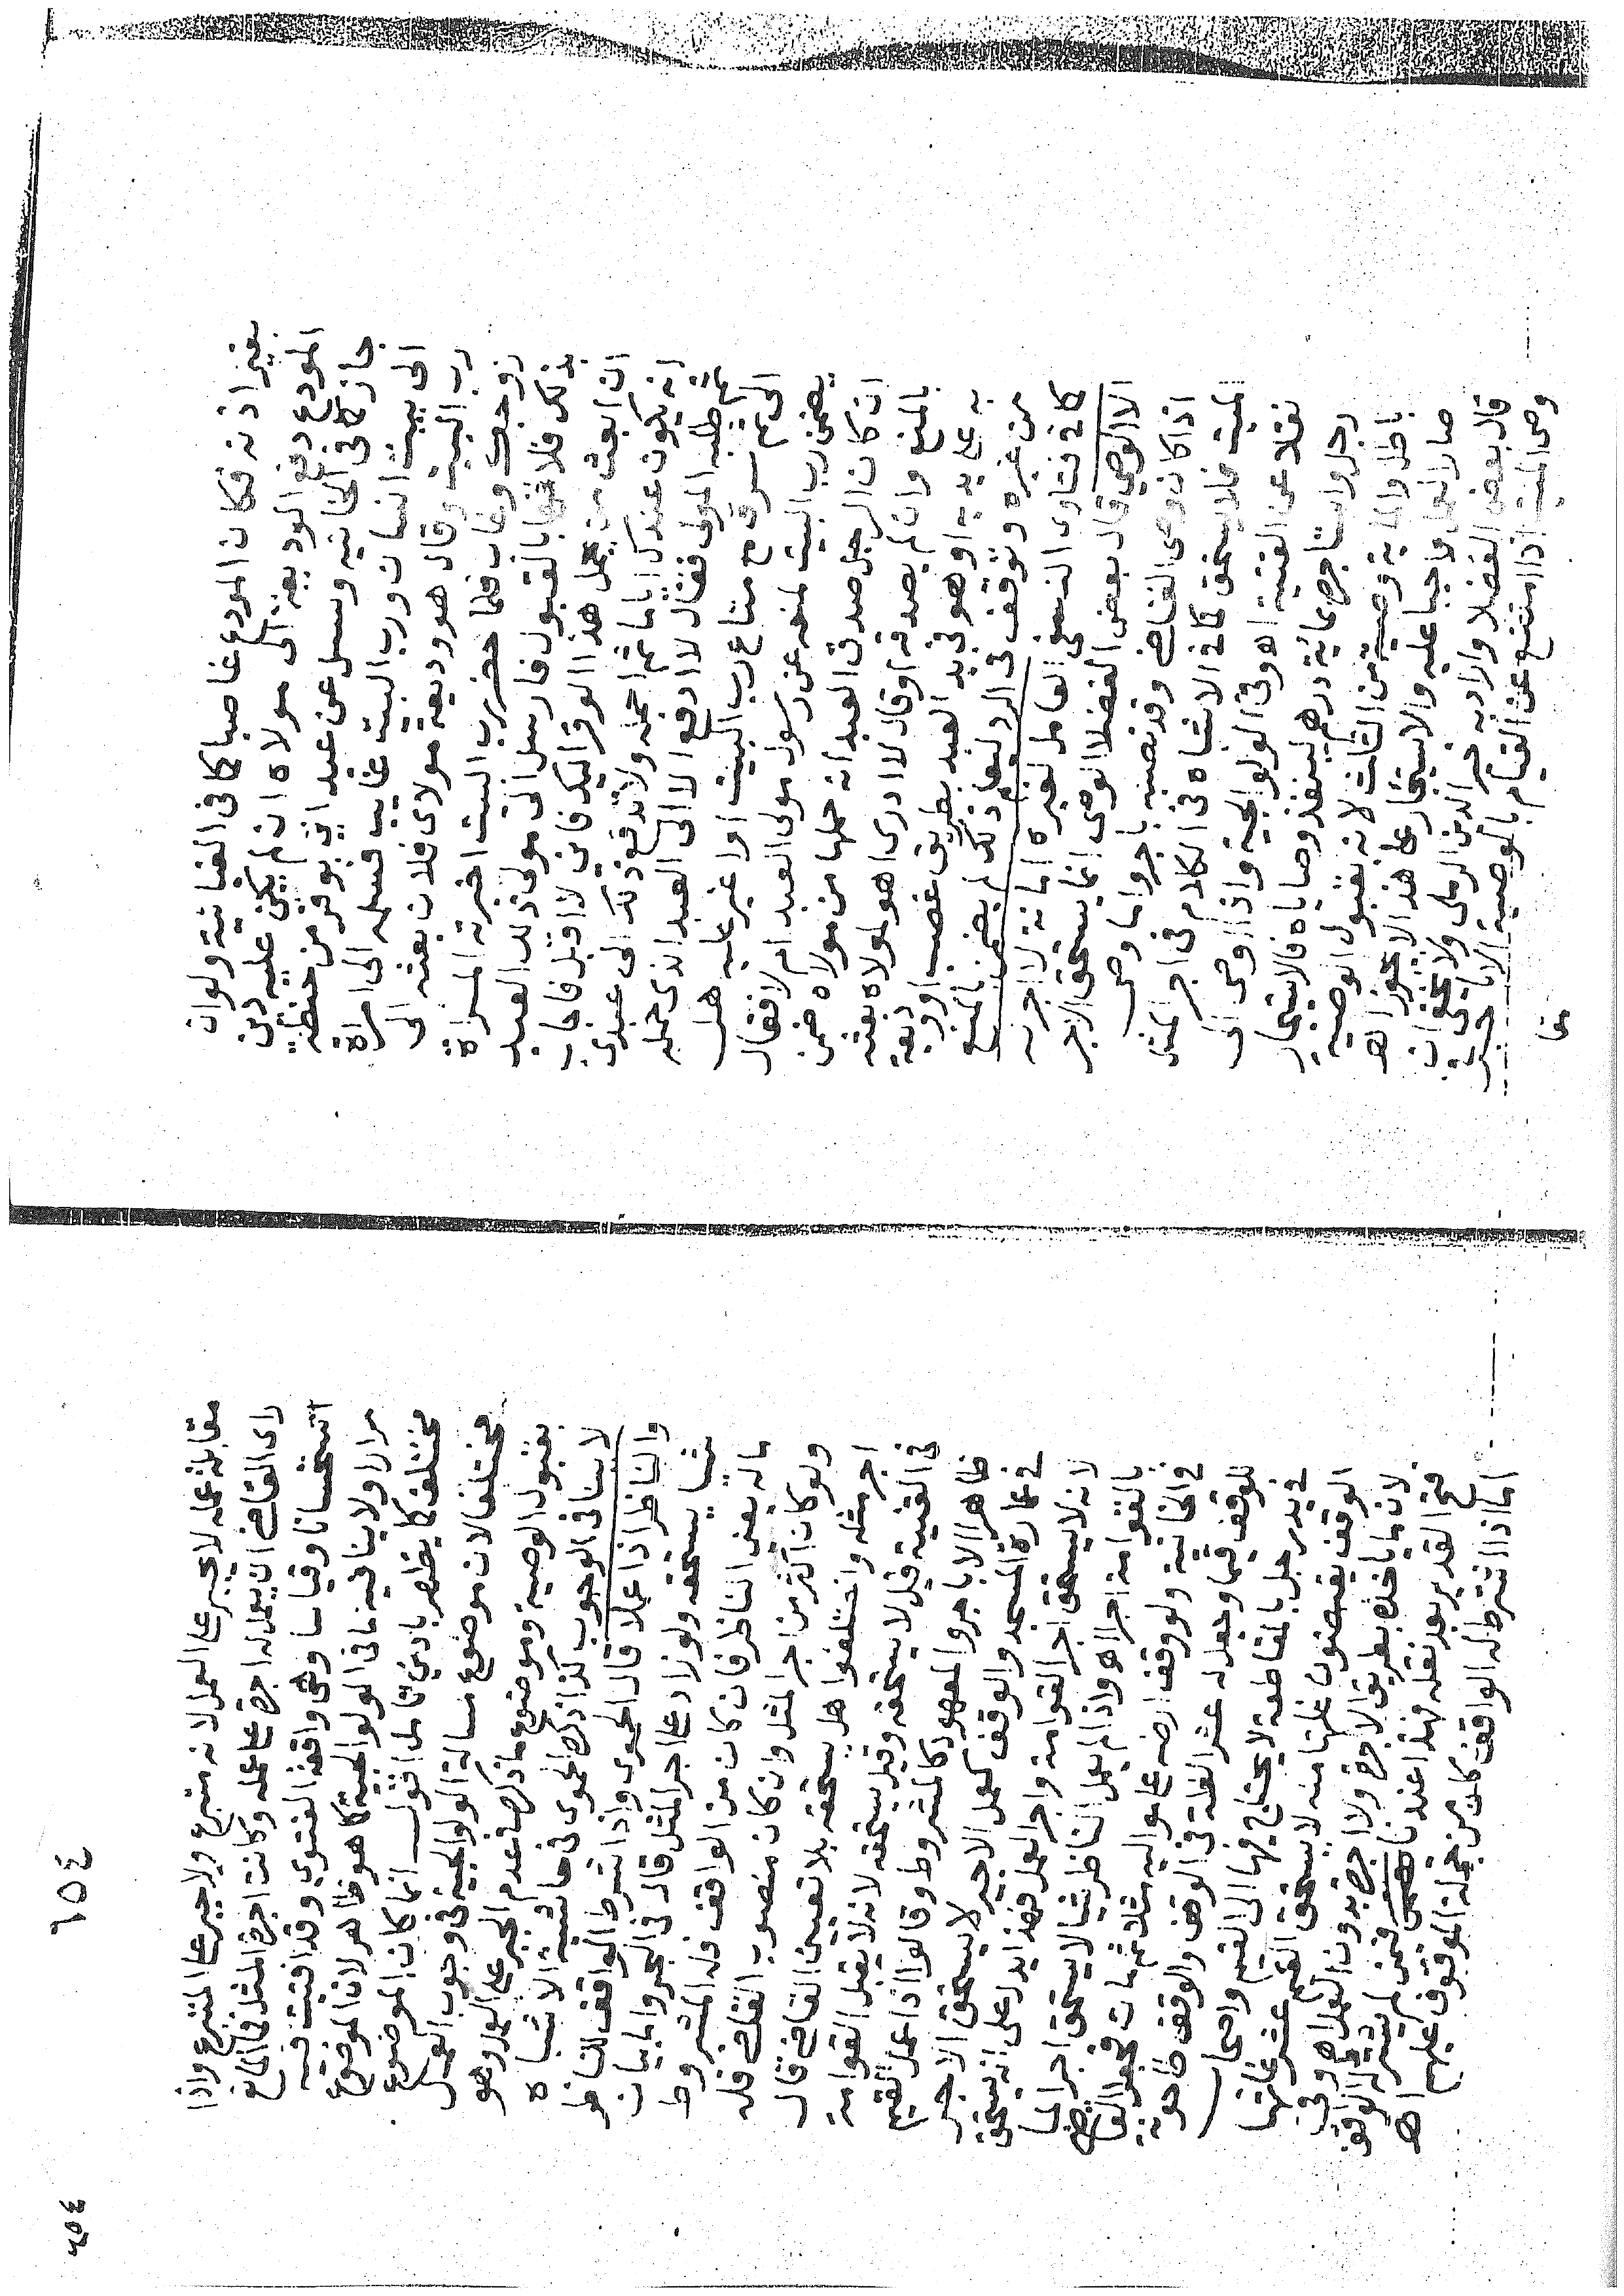 بغير اذنه فكان المودع غاصبا كما في الغياثية ولو ان
المودع دفع الوديعة الى مولاه ان لم يكن عليه دين
جاز كما في الخانيه وسئل عن عبد اتى بوقر من حنطة
الى بيت انسان ورب البيت غايب فسلمه الى امراة
رب البيت وقال هو وديعة مولاي فلان بعثه الى
زوجك وغاب فلما حضر رب البيت اخبرته المراة
بذلك فلامها بالقبول فارسل الى مولى ذلك العبد
ان ابعث من يحمل هذا الوقر اليك فاني لا اقبل فاجاب
انه يكون عندك اياما ثم احمله ولا تدفع ذلك الى عبدي
ثم طلبه المولى فقال لا ادفع الا الى العبد الذي حمله
الى ثم سرق مع متاع رب البيت او اغير عليه هل
يضمن رب البيت لمنعه عن رسول مولى العبد ام لا فقال
ان كان الرجل صدق العبد انه حملها من مولاه ضمن
بالمنع وان لم يصدقه او قال لا ادري اهو لمولاه بعثه
به على يديه او هو في يد العبد بطريق غصب او وديعة
من غيره وتوقف في الرد ليعلم ذلك لم يضمن بالمنع
كما في فتاوى النسفي العامل لغيره امانة لا اجر له
الا الوصي قال بعض الفضلا الوصي انما يستحق الاجر
اذا كان وصي القاضي وقد نصبه باجر واما وصي
الميت فلا يستحق كما في الاشباه في الكلام في اجر المثل
نقلا عن القنية اهـ وفي الولوالجية واذا اوصى الى
رجل واستاجره بمائة درهم لينفذ وصاياه فالاستيجار
باطل والماية وصية من الثلث لانه بقبول الوصيه
صار العمل واجبا عليه والاستيجار على هذا لا يجوز اهـ
قال بعض الفضلا ولا دبه خير الدين الرملي ولا يخفى ان
وصي الميت اذا امتنع عن القيام بالوصية الا باجر في
مقابلة عمله لا يجبر على العمل لانه متبرع ولا جبر على المتبرع واذا
راى القاضي ان يعمل له اجرة على عمله وكانت اجرة المثل فما المانع
استحسانا وقياسا وهي واقعة الفتوى وقد افتيت فيه
مرارا ولا ينافيه ما في الولوالجية كما هو ظاهر لان الموضوع
مختلف كما يظهر بادني تامل اقول انما كان الموضوع
مختلفا لان موضوع مسالة الولوالجية في وجوب العمل
بقبول الوصية وموضوع ما ذكره في عدم الجبر على العمل وهو
لا ينافي الوجوب كذا ذكره الحموي في حاشية الاشباه
والناظر اذا عملا قال الحموي واذا شرط الواقف للناظر
شيا يستحقه ولو زاد على اجر المثل قال في البحر واما بيان
ماله يعني الناظر فان كان من الواقف فله المشروط
ولو كان اكثر من اجر المثل وان كان منصوب القاضي فله
اجر مثله واختلفوا هل يستحقه بلا تعيين القاضي قال
في القنية قيل لا يستحقه وقيل يستحقه لانه لا يقبل القوامة
ظاهرا الا باجر والمعهود كالمشروط وقالوا اذا عمل القيم
في عمارة المسجد والوقف كعمل الاجير لا يستحق الاجر
لانه لا يستحق اجر القوامة واجر العمل فهذا يدل على انه يستحق
بالقوامة اجرا اهـ واذا لم يعمل الناظر شيا لا يستحق اجرا لما
في الخانية ولو وقف ارضه على مواليه مثلا ثم مات فجعل القاضي
للوقف قيما وجعل له عشر الغلة في الوقف والوقف طاحونة
في يد رجل بالمقاطعة لا يحتاج فيها الى القيم واصحاب
الوقف يقبضون غلتها منه لا يستحق القيم عشر غلتها
لان ما ياخذه بطريق الاجرة ولا اجرة بدون العمل اهـ وفي
فتح القدير بعد نقله فهذا عندنا فيمن لم يشترط له الواقف
اما اذا اشترط له الواقف كان من جملة الموقوف عليهم اهـ
١٥٤